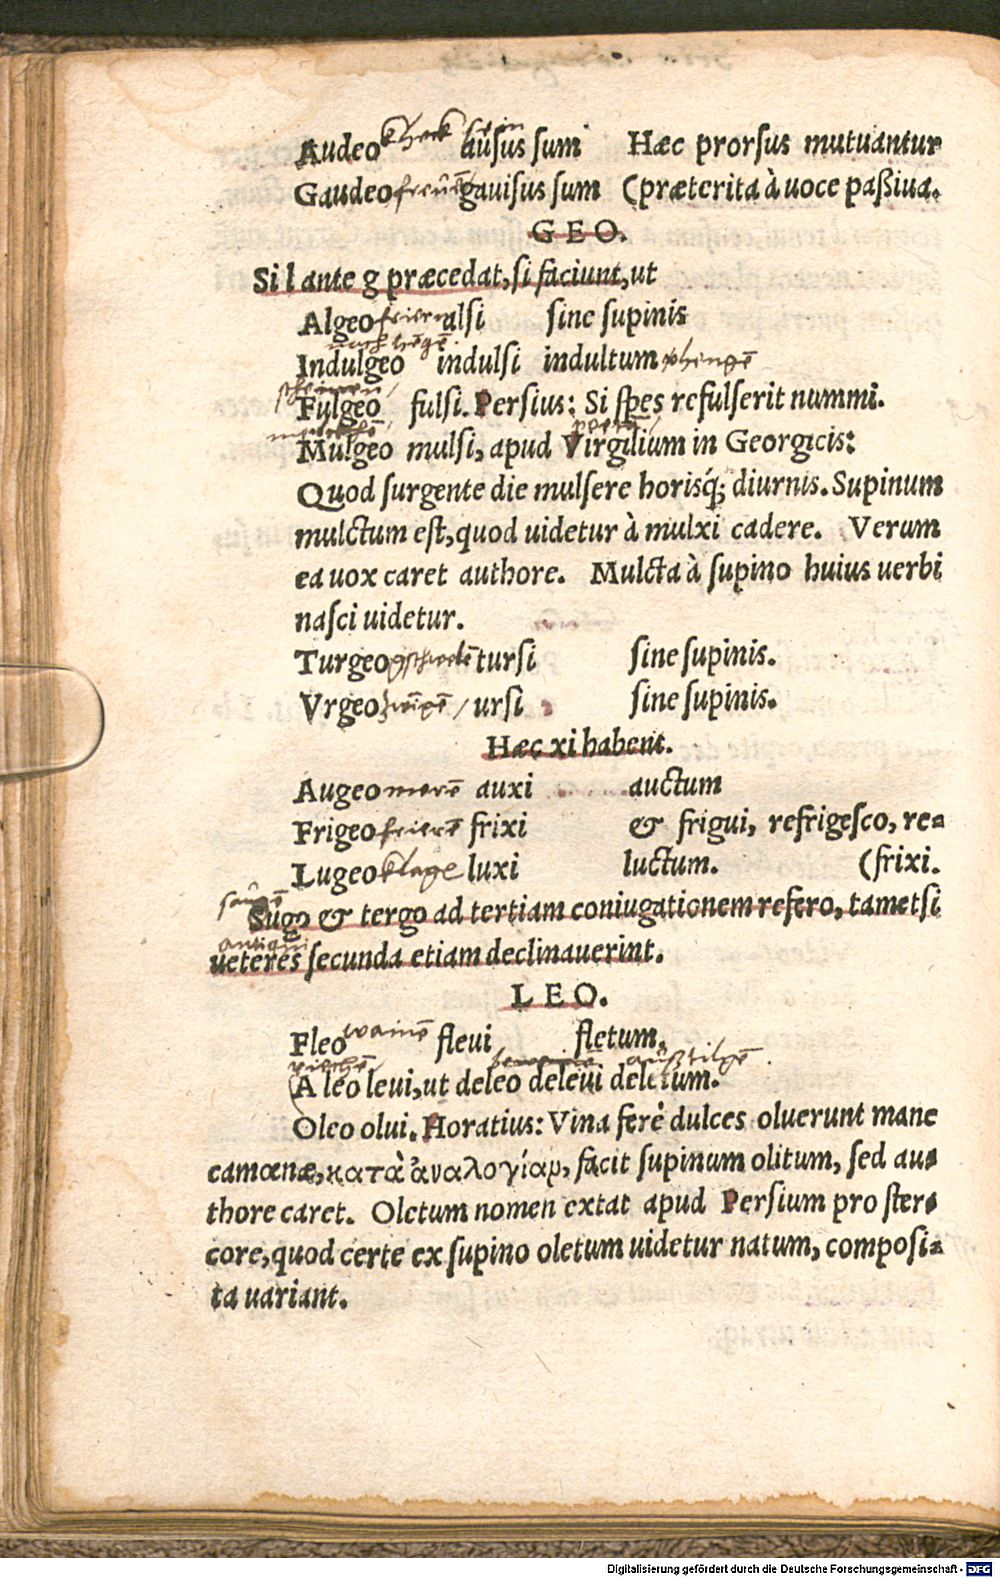 Audeo kheck sein ausus sum Hæc prorsus mutuantur
Gaudeo gauisus sum (præterita à uoce paßiua.
GEO.
Si l ante g præcedat, si faciunt, ut
Algeo alsi sine supinis
Indulgeo indulsi indultum
scheinen
Fulgeo fulsi. Persius: Si spes refulserit nummi.
Mulgeo mulsi, apud Virgilium in Georgicis:
Quod surgente die mulsere horisq́; diurnis. Supinum
mulctum est, quod uidetur à mulxi cadere. Verum
ea uox caret authore. Mulcta à supino huius uerbi
nasci uidetur.
Turgeo tursi sine supinis.
Vrgeo ursi sine supinis.
Hæc xi habent.
Augeo merē auxi auctum
Frigeo frierē frixi & frigui, refrigesco, re=
Lugeo klage luxi luctum. (frixi.
Sugo & tergo ad tertiam coniugationem refero, tametsi
antiqui
ueteres secunda etiam declinauerint.
LEO.
Fleo wainē fleui fletum.
außtilgē
A leo leui, ut deleo deleui deletum.
Oleo olui. Horatius: Vina ferè dulces oluerunt mane
camœnæ, κατὰ ἀναλογίαν, facit supinum olitum, sed au=
thore caret. Oletum nomen extat apud Persium pro ster=
core, quod certe ex supino oletum uidetur natum, composi=
ta uariant.
Digitalisierung gefördert durch die Deutsche Forschungsgemeinschaft - DFG